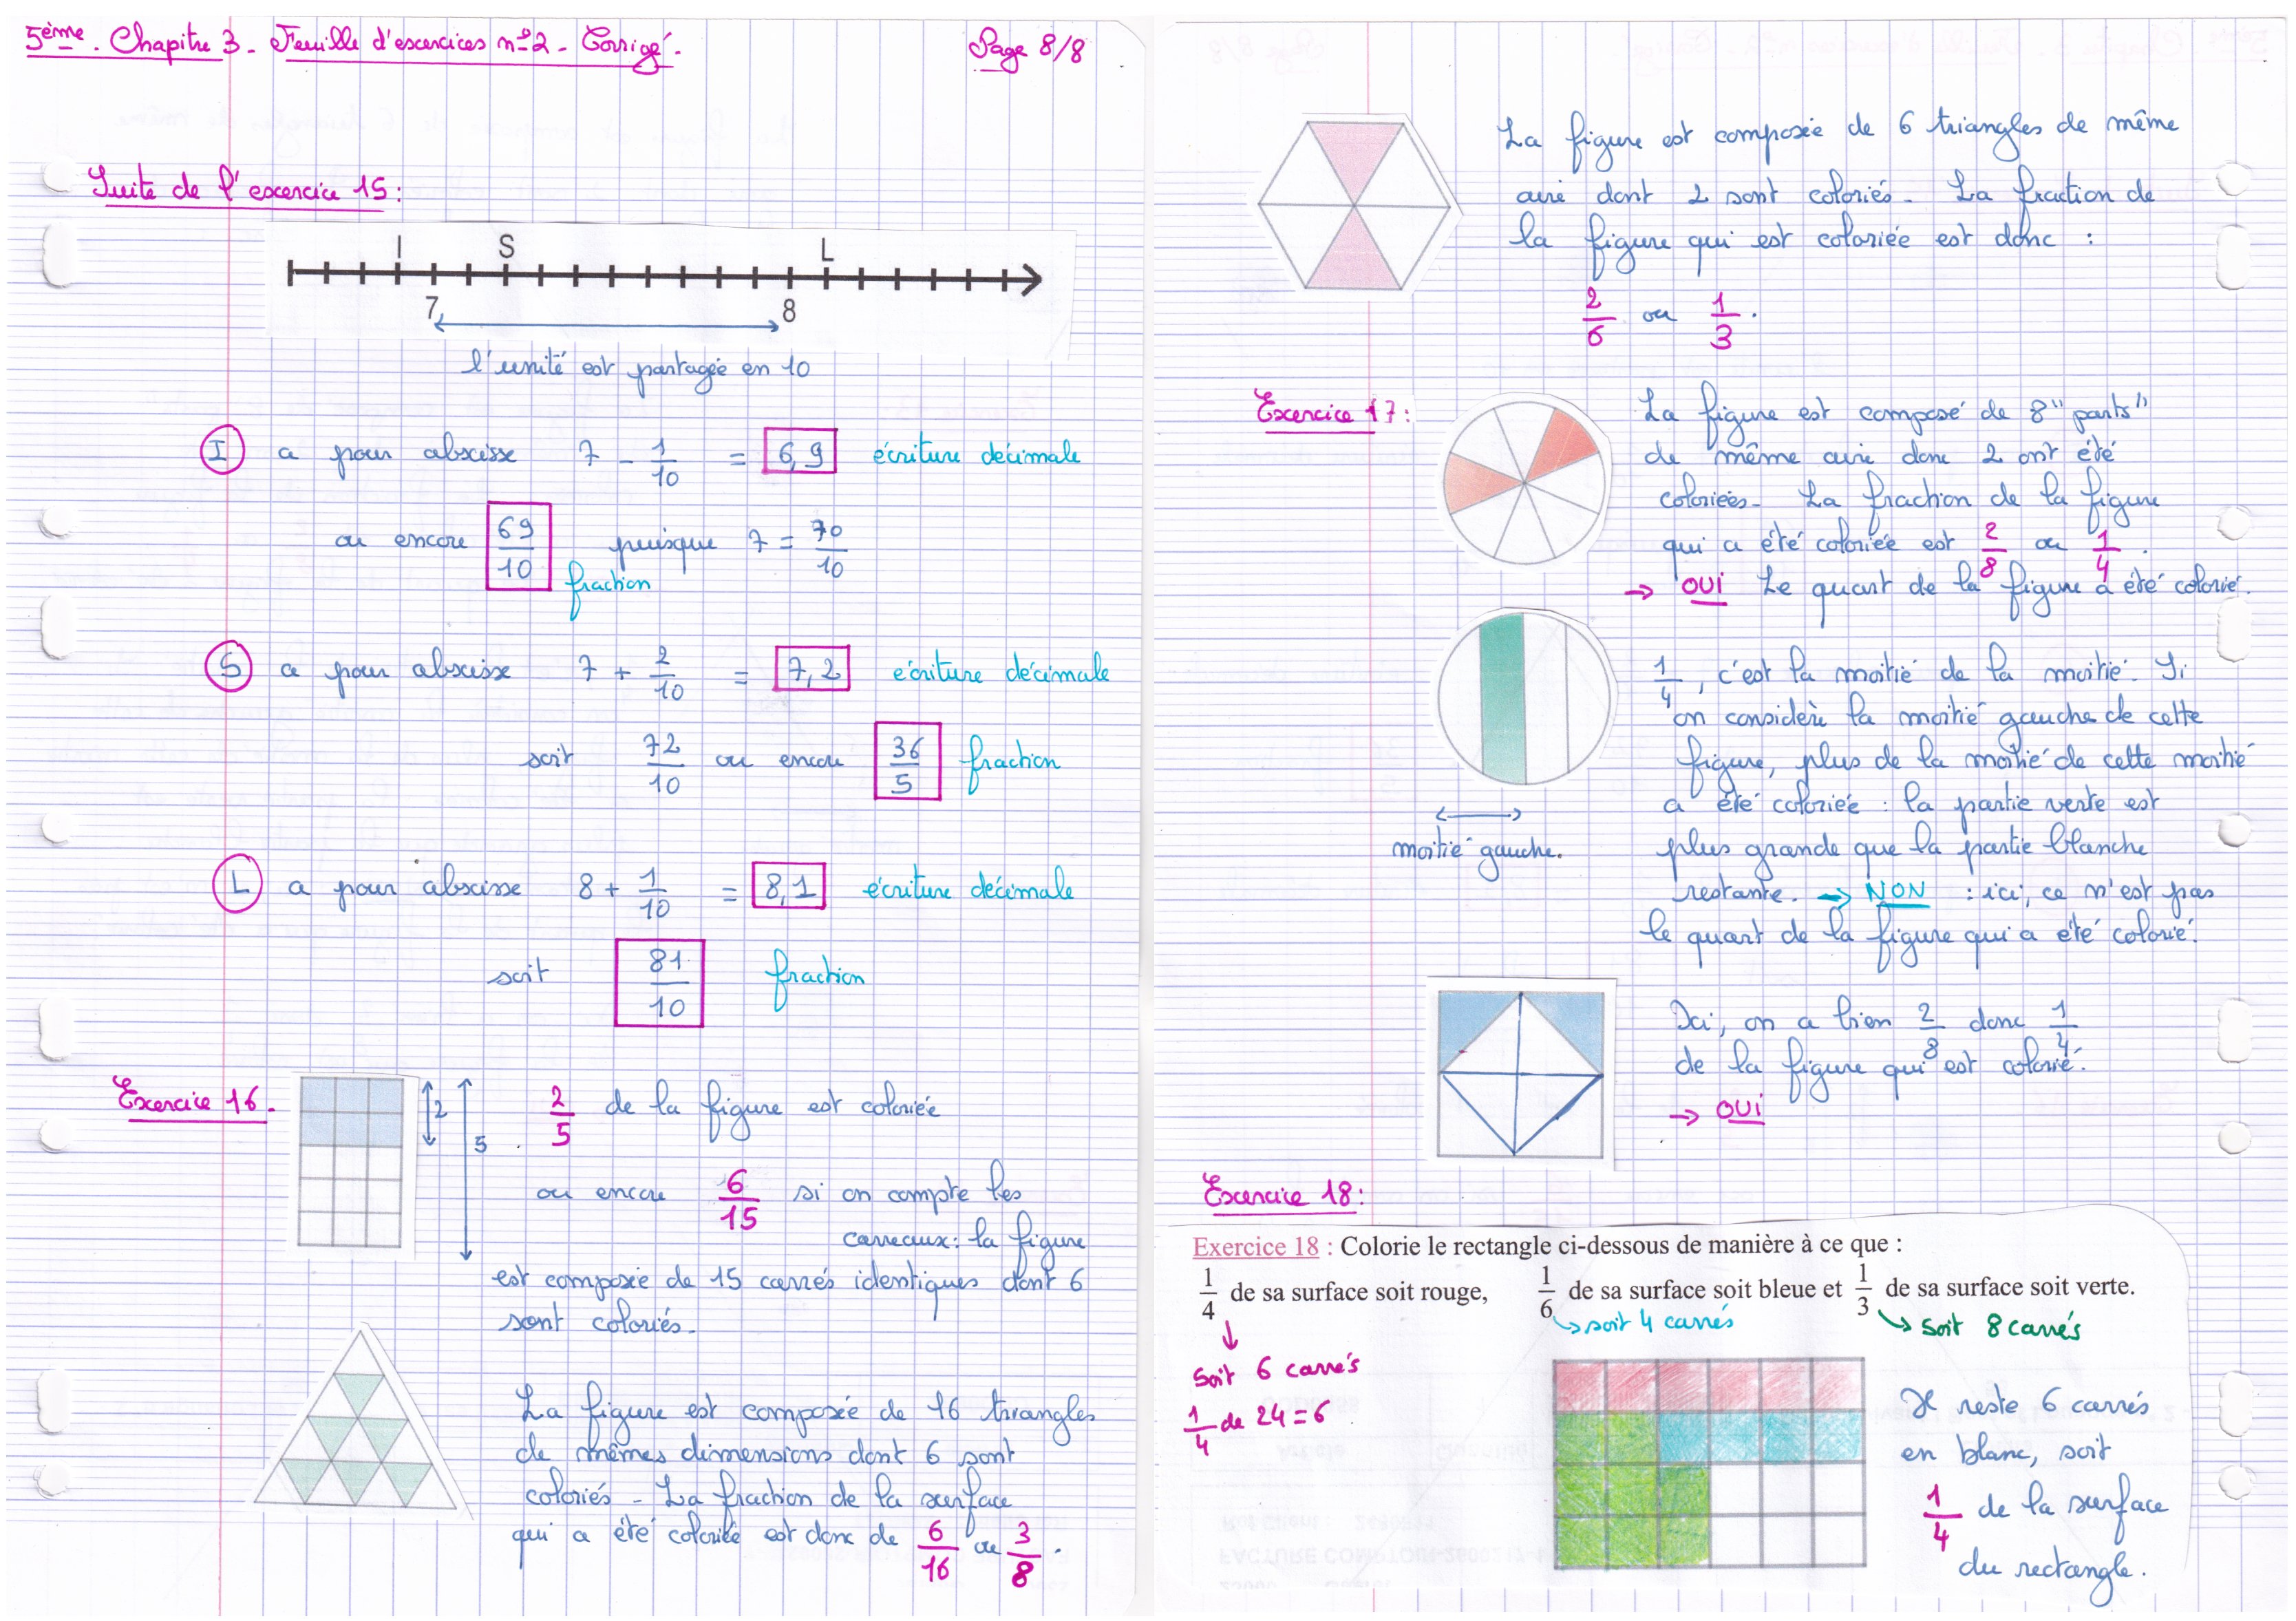 5ème. Chapitre 3 - Feuille d'exercices n°2 - Corrigé. Page 8/8
Suite de l'exercice 15:
I S L
7 8
l'unité est partagée en 10
I a pour abscisse 7 - 1/10 = 6,9 écriture décimale
ou encore 69/10 puisque 7 = 70/10
fraction
S a pour abscisse 7 + 2/10 = 7,2 écriture décimale
soit 72/10 ou encore 36/5 fraction
L a pour abscisse 8 + 1/10 = 8,1 écriture décimale
soit 81/10 fraction
Exercice 16.
2
5
2/5 de la figure est coloriée
ou encore 6/15 si on compte les
carreaux: la figure
est composée de 15 carrés identiques dont 6
sont coloriés.
La figure est composée de 16 triangles
de mêmes dimensions dont 6 sont
coloriés - La fraction de la surface
qui a été coloriée est donc de 6/16 ou 3/8.
La figure est composée de 6 triangles de même
aire dont 2 sont coloriés - La fraction de
la figure qui est coloriée est donc :
2/6 ou 1/3.
Exercice 17:
La figure est composé de 8 "parts"
de même aire donc 2 ont été
coloriées - La fraction de la figure
qui a été coloriée est 2/8 ou 1/4.
→ OUI Le quart de la figure a été colorié.
1/4, c'est la moitié de la moitié. Si
on considère la moitié gauche de cette
figure, plus de la moitié de cette moitié
a été coloriée : la partie verte est
plus grande que la partie blanche
restante. → NON : ici, ce n'est pas
le quart de la figure qui a été colorié.
moitié gauche.
Ici, on a bien 2/8 donc 1/4
de la figure qui est colorié.
→ OUI
Exercice 18:
Exercice 18 : Colorie le rectangle ci-dessous de manière à ce que :
1/4 de sa surface soit rouge, 1/6 de sa surface soit bleue et 1/3 de sa surface soit verte.
↳ soit 4 carrés
↳ soit 8 carrés
↓
Soit 6 carrés
1/4 de 24 = 6
Il reste 6 carrés
en blanc, soit
1/4 de la surface
du rectangle.